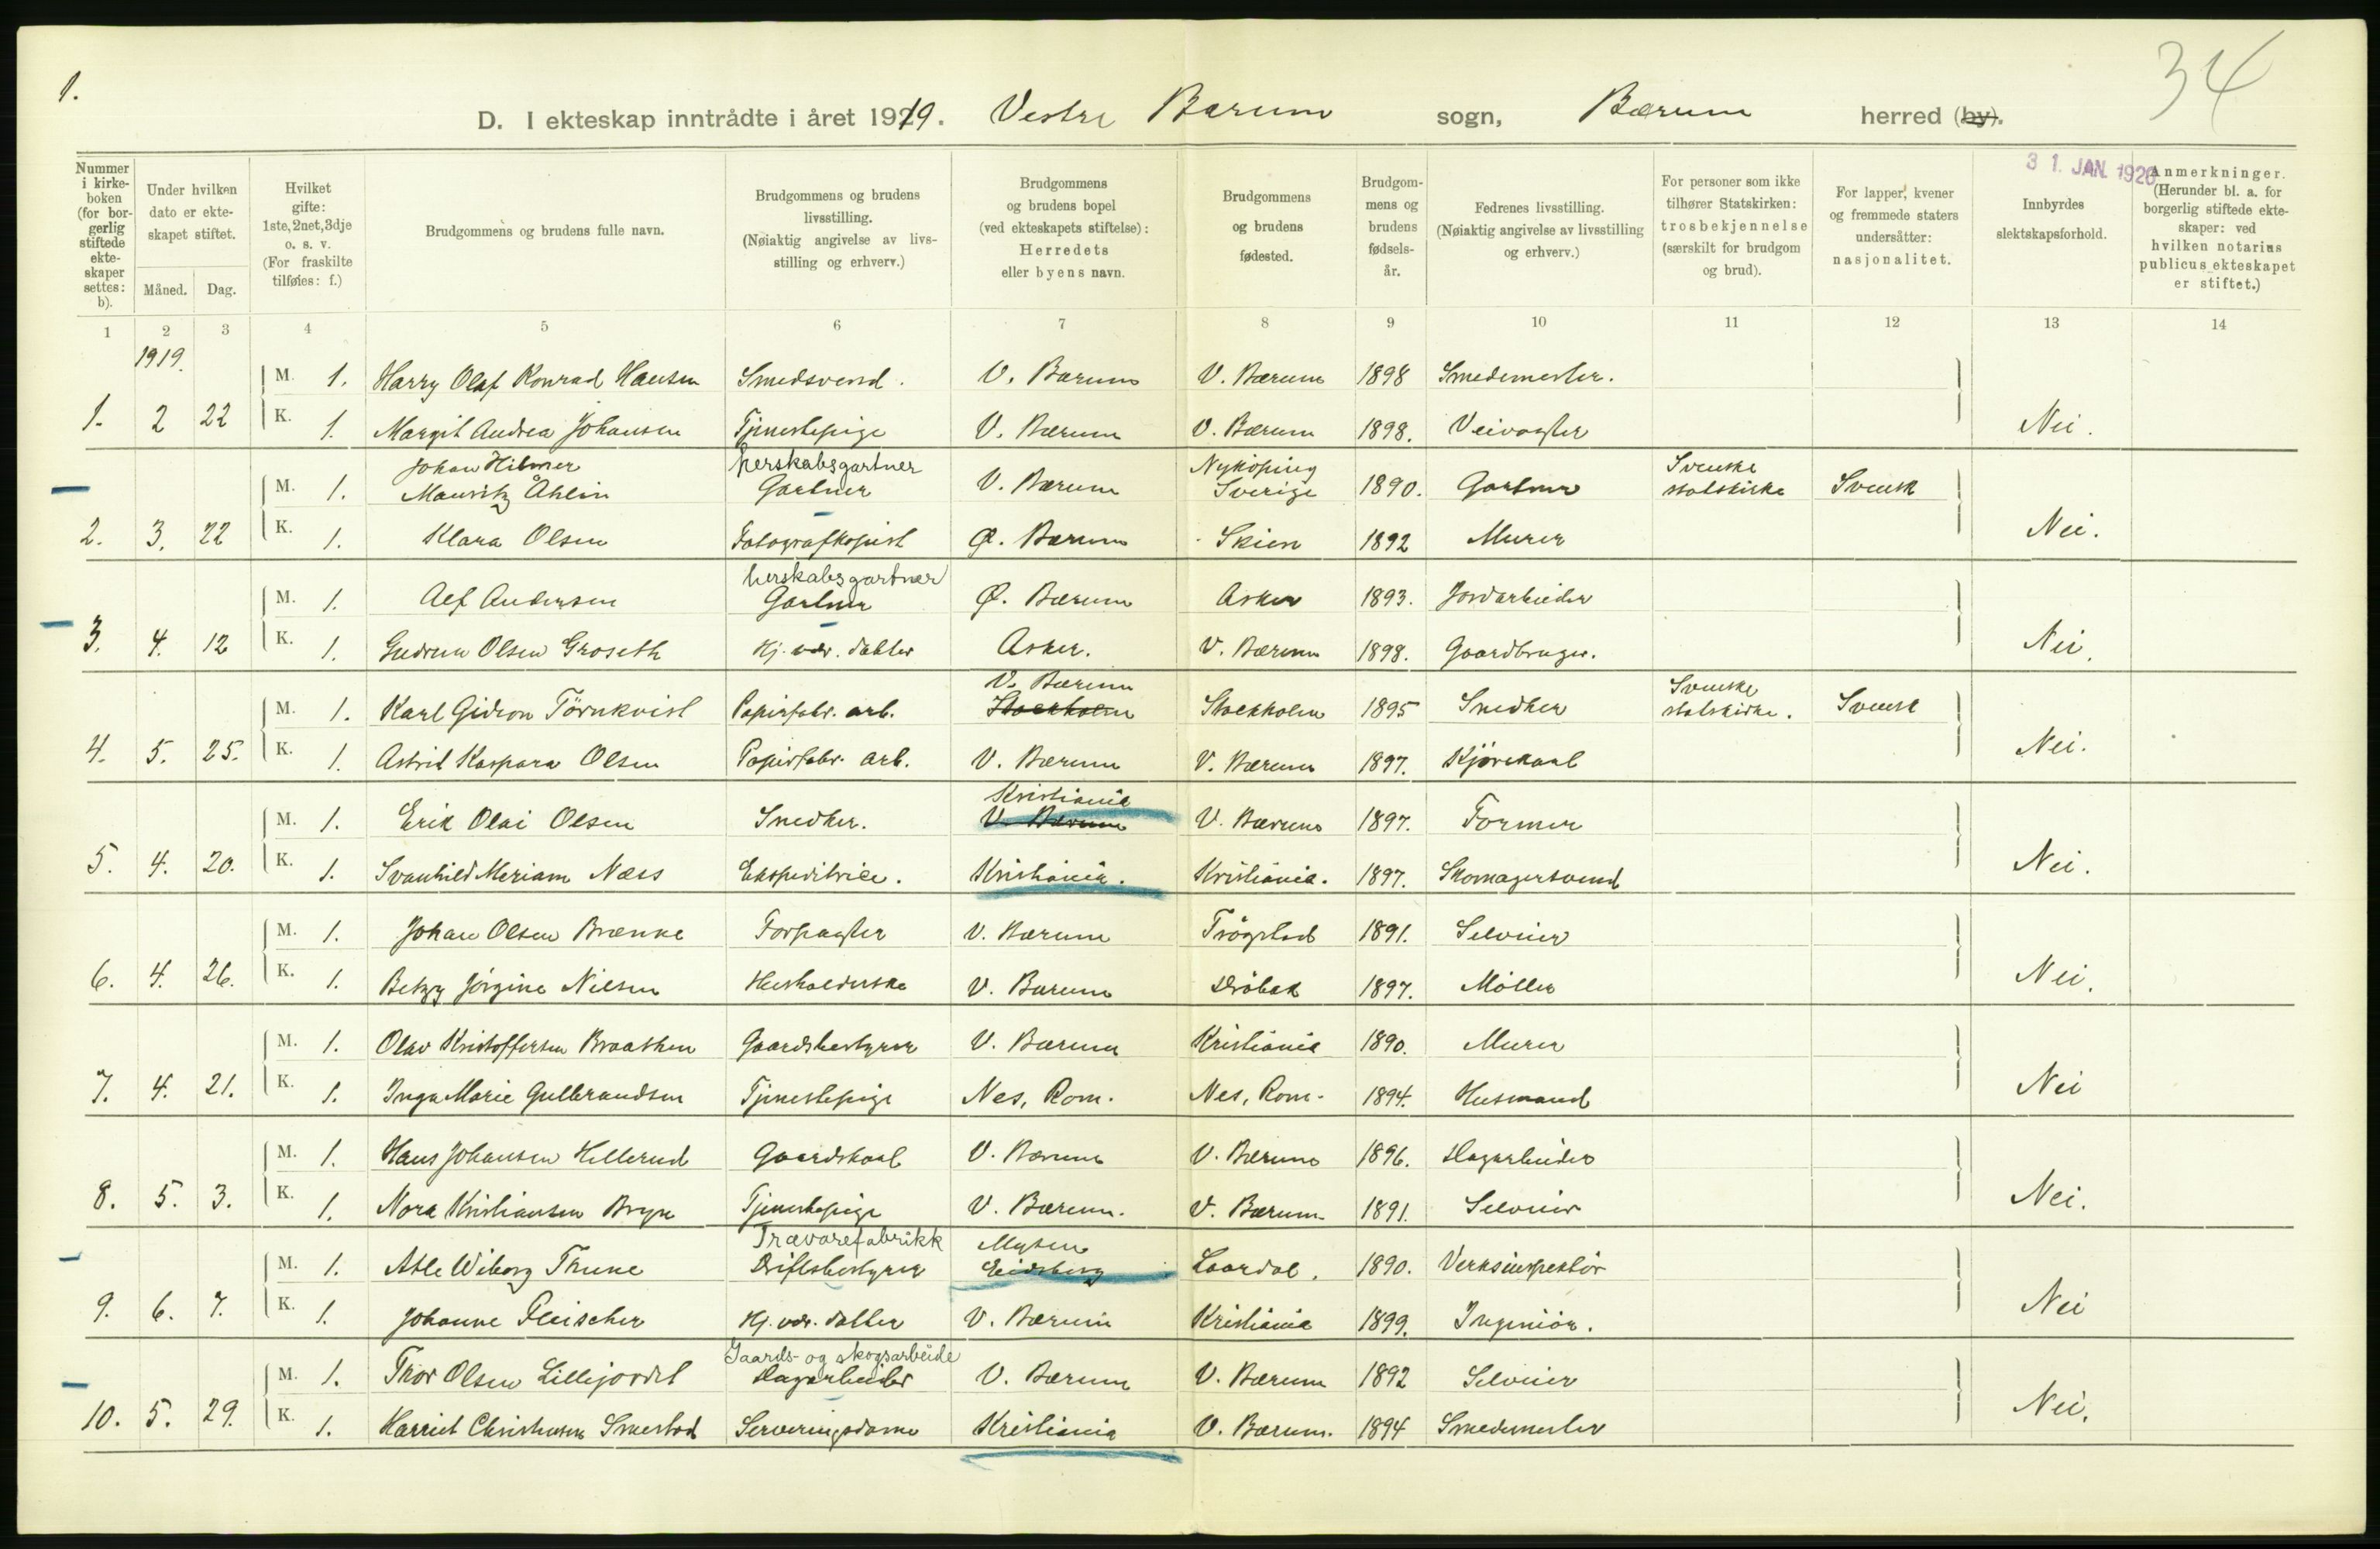 1.
34
D. I ekteskap inntrådte i året 1919. Vestre Bærum sogn, Bærum herred (by).
31. JAN. 1920
Nummer i kirkeboken (for borgerlig stiftede ekteskaper settes: b).
Under hvilken dato er ekteskapet stiftet.
Måned. Dag.
Hvilket gifte: 1ste, 2net, 3dje o. s. v. (For fraskilte tilføies: f.)
Brudgommens og brudens fulle navn.
Brudgommens og brudens livsstilling. (Nøiaktig angivelse av livsstilling og erhverv.)
Brudgommens og brudens bopel (ved ekteskapets stiftelse): Herredets eller byens navn.
Brudgommens og brudens fødested.
Brudgommens og brudens fødselsår.
Fedrenes livsstilling. (Nøiaktig angivelse av livsstilling og erhverv.)
For personer som ikke tilhører Statskirken: trosbekjennelse (særskilt for brudgom og brud).
For lapper, kvener og fremmede staters undersåtter: nasjonalitet.
Innbyrdes slektskapsforhold.
Anmerkninger. (Herunder bl. a. for borgerlig stiftede ekteskaper: ved hvilken notarius publicus ekteskapet er stiftet.)
1 2 3 4 5 6 7 8 9 10 11 12 13 14
1919.
M. 1. Harry Olaf Konrad Hansen Smedsvend. V. Bærum V. Bærum 1898 Smedemester.
1. 2 22 K. 1. Margit Andrea Johansen Tjenestepige V. Bærum V. Bærum 1898. Veivogter Nei.
Johan Hilmer herskabsgartner Nykøping Svenske
M. 1. Mauritz Åhlin Gartner V. Bærum Sverige 1890. Gartner statskirke Svensk
2. 3. 22 K. 1. Klara Olsen Fotografkopist Ø. Bærum Skien 1892 Murer Nei.
herskabsgartner
M. 1. Alf Andersen Gartner Ø. Bærum Asker 1893. Jordarbeider
3. 4. 12 K. 1. Gudrun Olsen Groseth Hj. vær. datter Asker. V. Bærum 1898. Gaardbruger. Nei.
V. Bærum Svenske
M. 1. Karl Gideon Törnkvist Papirfabr. arb. Stockholm Stockholm 1895 Snedker statskirke. Svensk
4. 5. 25. K. 1. Astrid Kaspara Olsen Papirfabr. arb. V. Bærum V. Bærum 1897. Kjørekarl Nei.
Kristiania
M. 1. Erik Olai Olsen Snedker. V. Bærum V. Bærum 1897. Former
5. 4. 20. K. 1. Svanhild Meriam Næss Ekspeditrice. Kristiania. Kristiania. 1897. Skomagersvend Nei.
M. 1. Johan Olsen Brænne Forpagter V. Bærum Trögstad 1891. Selveier
6. 4. 26. K. 1. Betzy Jörgine Nilsen Husholderske V. Bærum Dröbak 1897. Möller Nei.
M. 1. Olav Kristoffersen Braathen Gaardsbestyrer V. Bærum Kristiania 1890. Murer
7. 4. 21. K. 1. Inga Marie Gulbrandsen Tjenestepige Nes, Rom. Nes, Rom. 1894. Husmand Nei
M. 1. Hans Johansen Hellerud Gaardskarl V. Bærum V. Bærum 1896. Dagarbeider
8. 5. 3. K. 1. Nora Kristiansen Bryn Tjenestepige V. Bærum. V. Bærum 1891. Selveier Nei.
Trævarefabrikk Mysen
M. 1. Atle Wiborg Thune Driftsbestyrer Eidsberg Laardal. 1890. Verksinspektör
9. 6. 7. K. 1. Johanne Fleischer Hj. vær. datter V. Bærum Kristiania 1899. Ingeniör. Nei
Gaards- og skogsarbeide
M. 1. Thor Olsen Lillejordet Dagarbeider V. Bærum V. Bærum 1892 Selveier
10. 5. 29. K. 1. Harriet Christensen Smestad Serveringsdame Kristiania V. Bærum. 1894 Smedemester Nei.